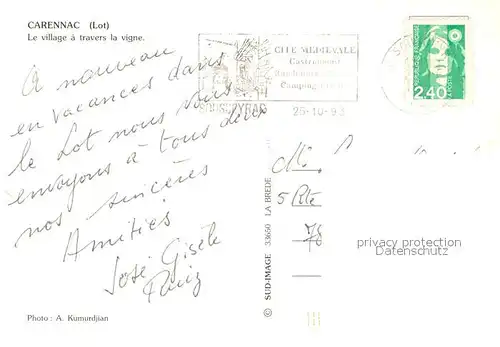 CARENNAC (Lot)
Le village à travers la vigne.
A nouveau
en vacances dans
le Lot nous vous
envoyons à tous deux
nos sincères
Amitiés
José Gisèle
Ruiz
Photo : A. Kumurdjian
© SUD-IMAGE 33650 LA BREDE
CITE MEDIEVALE
SOUSCEYRAC
25-10-93
REPUBLIQUE FRANÇAISE
LA POSTE
2,40
5 Rte
78
privacy protection
Datenschutz